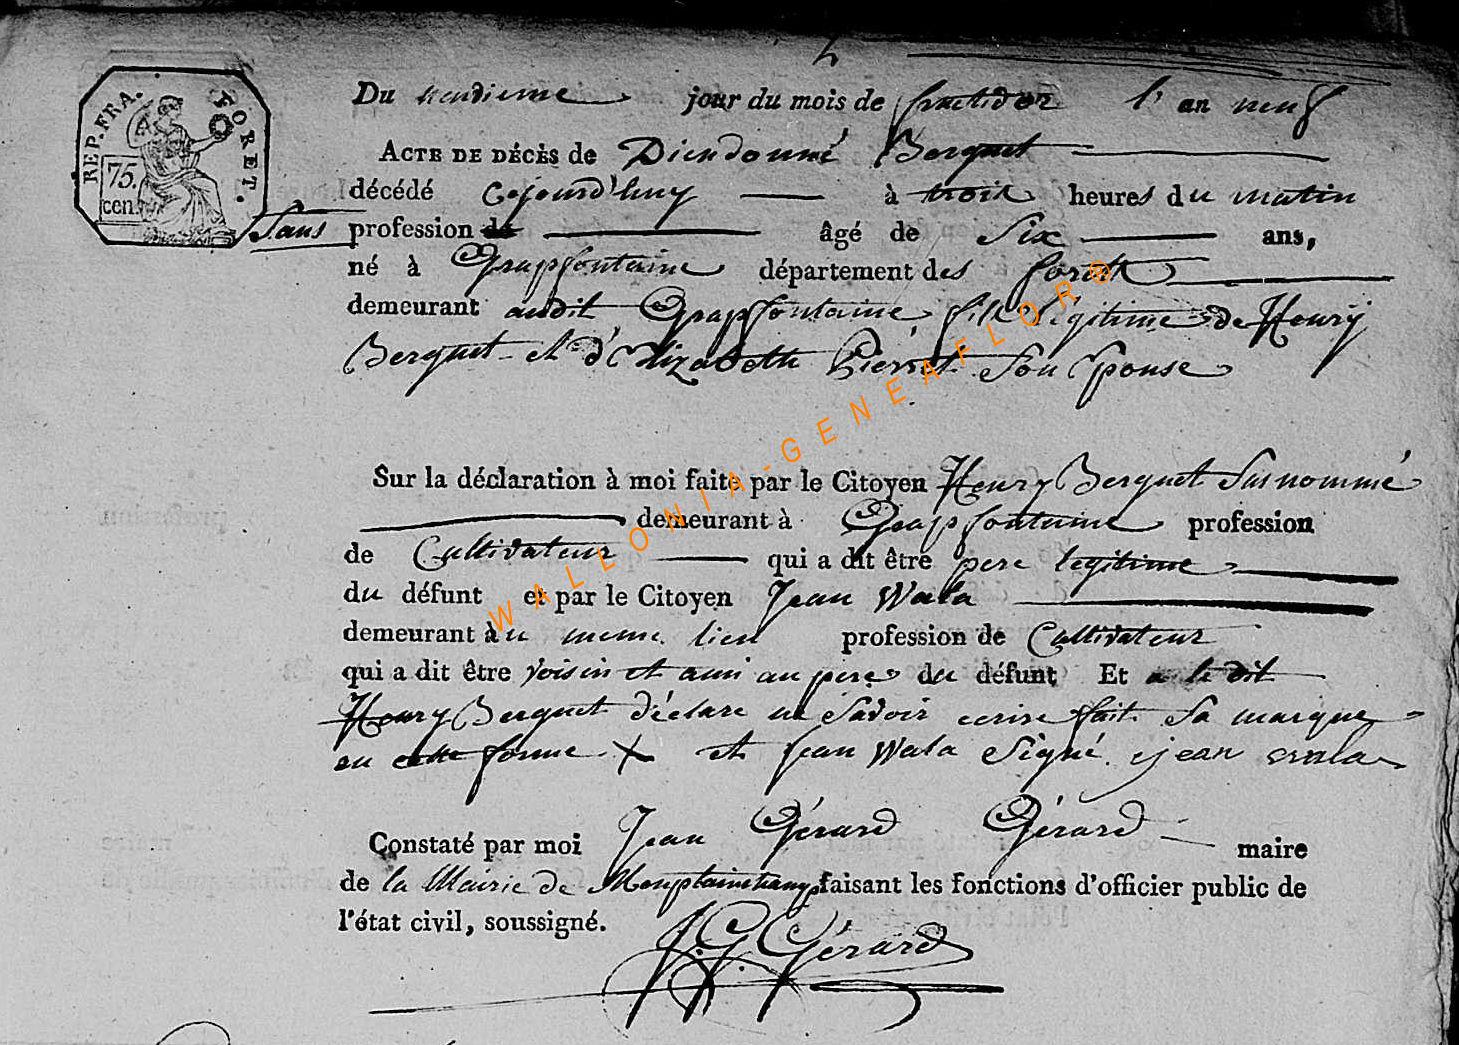 REP. FRA. FORET.
75. cen.
Du jour du mois de fructidor l'an neuf
ACTE DE DÉCÈS de Dieudonné Berguet
décédé cejourd'huy à trois heures du matin
Sans profession de âgé de Six ans,
né à Grapfontaine département des forets
demeurant audit Grapfontaine fils légitime de Henry
Berguet et d'Elizabeth Pierret Son Epouse
Sur la déclaration à moi faite par le Citoyen Henry Berguet Susnommé
demeurant à Grapfontaine profession
de Cultivateur qui a dit être pere legitime
du défunt et par le Citoyen Jean Wala
demeurant àu meme lieu profession de Cultivateur
qui a dit être voisin et ami au pere du défunt Et a le dit
Henry Berguet déclare ne Savoir ecrire fait Sa marque
en cette forme X et Jean Wala Signé. jean wala
Constaté par moi Jean Gérard Gérard maire
de la Mairie de faisant les fonctions d'officier public de
l'état civil, soussigné.
J. G. Gérard
WALLONIA-GENEAFLOR®